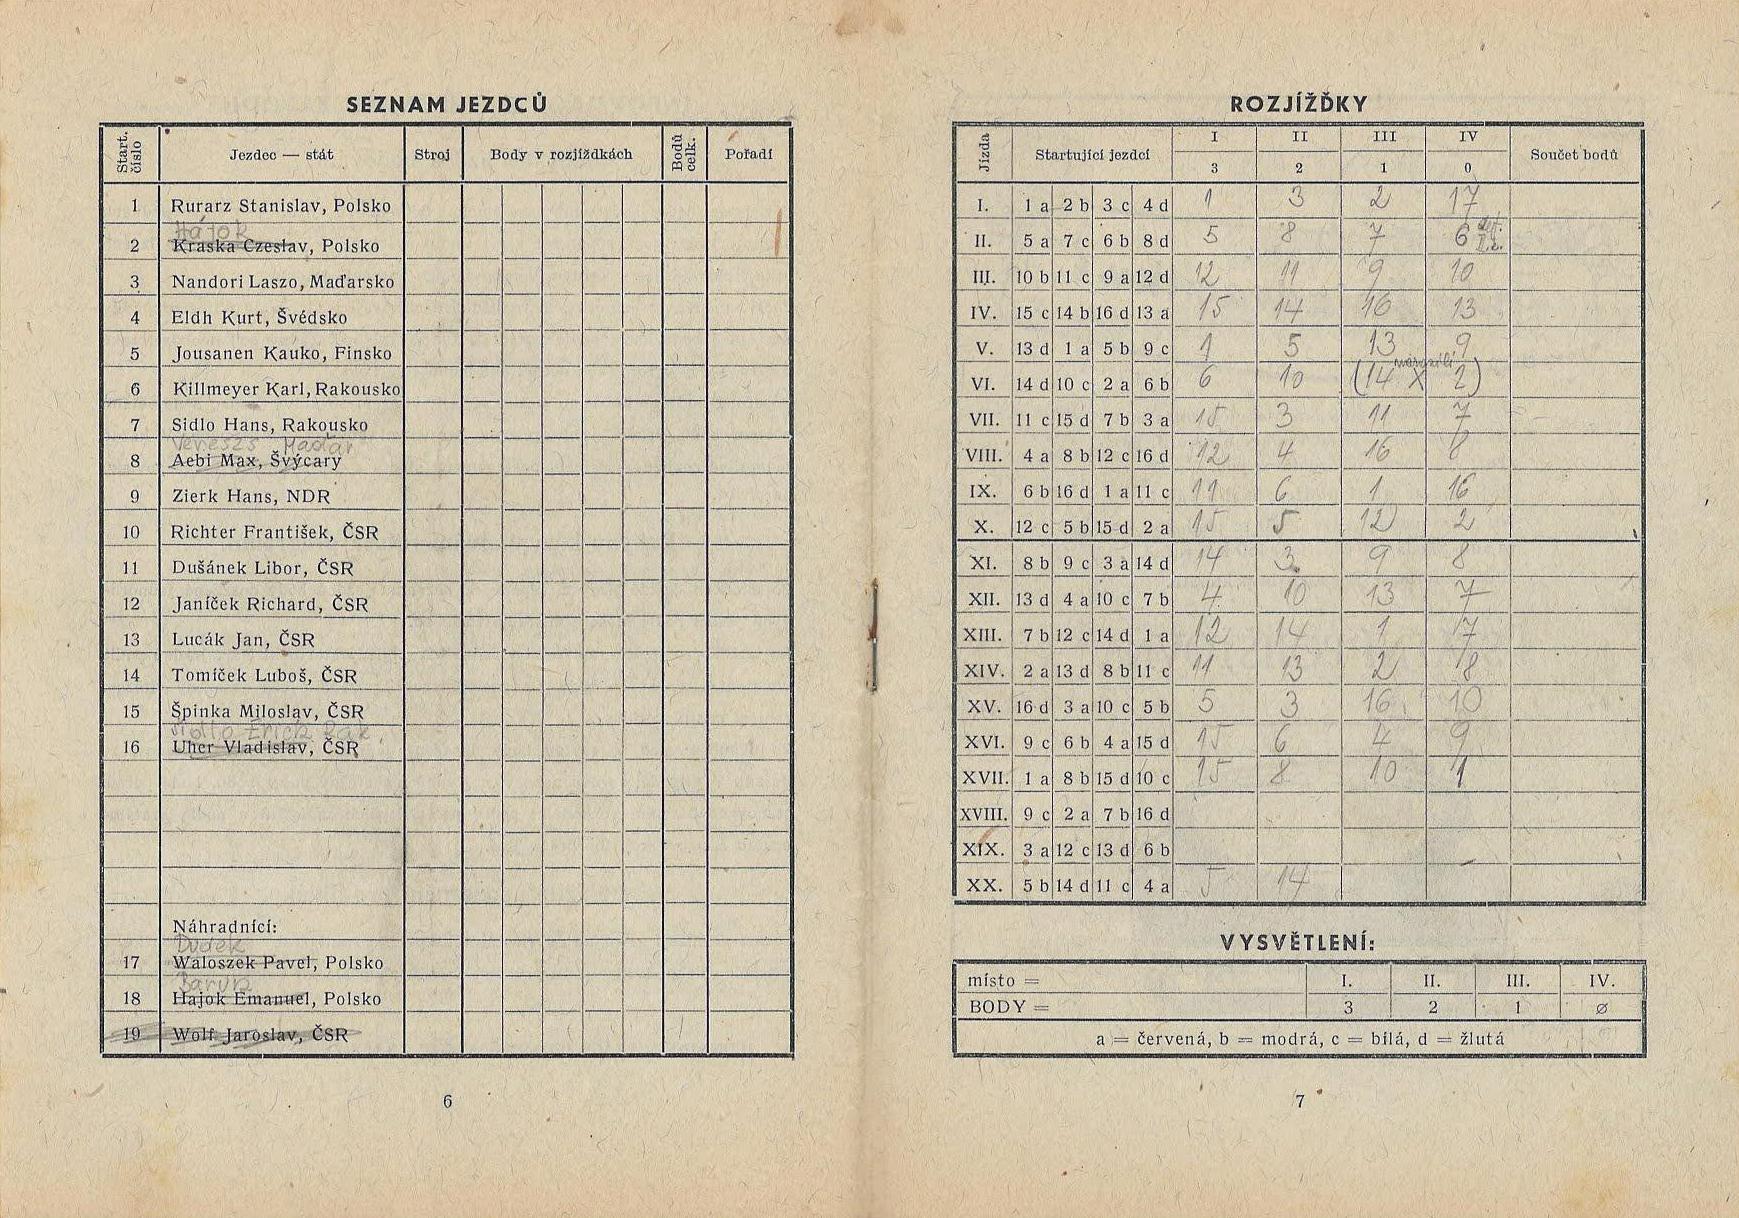 SEZNAM JEZDCŮ
Start. číslo Jezdec — stát Stroj Body v rozjíždkách Bodů celk. Pořadí
1 Rurarz Stanislav, Polsko
Hajok
2 Kraska Czeslav, Polsko
3 Nandori Laszo, Maďarsko
4 Eldh Kurt, Švédsko
5 Jousanen Kauko, Finsko
6 Killmeyer Karl, Rakousko
7 Sidlo Hans, Rakousko
Maďar
8 Aebi Max, Švýcary
9 Zierk Hans, NDR
10 Richter František, ČSR
11 Dušánek Libor, ČSR
12 Janíček Richard, ČSR
13 Lucák Jan, ČSR
14 Tomíček Luboš, ČSR
15 Špinka Miloslav, ČSR
Erich Rak.
16 Uher Vladislav, ČSR
Náhradníci:
Dudek
17 Waloszek Pavel, Polsko
18 Hajok Emanuel, Polsko
19 Wolf Jaroslav, ČSR
6
ROZJÍŽĎKY
Jízda Startující jezdci I II III IV Součet bodů
3 2 1 0
I. 1 a 2 b 3 c 4 d 1 3 2 17
II. 5 a 7 c 6 b 8 d 5 8 7 6
III. 10 b 11 c 9 a 12 d 12 11 9 10
IV. 15 c 14 b 16 d 13 a 15 14 16 13
V. 13 d 1 a 5 b 9 c 1 5 13 9
VI. 14 d 10 c 2 a 6 b 6 10 (14 X 2)
VII. 11 c 15 d 7 b 3 a 15 3 11 7
VIII. 4 a 8 b 12 c 16 d 12 4 16 8
IX. 6 b 16 d 1 a 11 c 11 6 1 16
X. 12 c 5 b 15 d 2 a 15 5 12 2
XI. 8 b 9 c 3 a 14 d 14 3 9 8
XII. 13 d 4 a 10 c 7 b 4 10 13 7
XIII. 7 b 12 c 14 d 1 a 12 14 1 17
XIV. 2 a 13 d 8 b 11 c 11 13 2 18
XV. 16 d 3 a 10 c 5 b 5 3 16 10
XVI. 9 c 6 b 4 a 15 d 15 6 4 9
XVII. 1 a 8 b 15 d 10 c 15 8 10 1
XVIII. 9 c 2 a 7 b 16 d
XIX. 3 a 12 c 13 d 6 b
XX. 5 b 14 d 11 c 4 a 5 14
VYSVĚTLENÍ:
místo = I. II. III. IV.
BODY = 3 2 1 ø
a = červená, b = modrá, c = bílá, d = žlutá
7